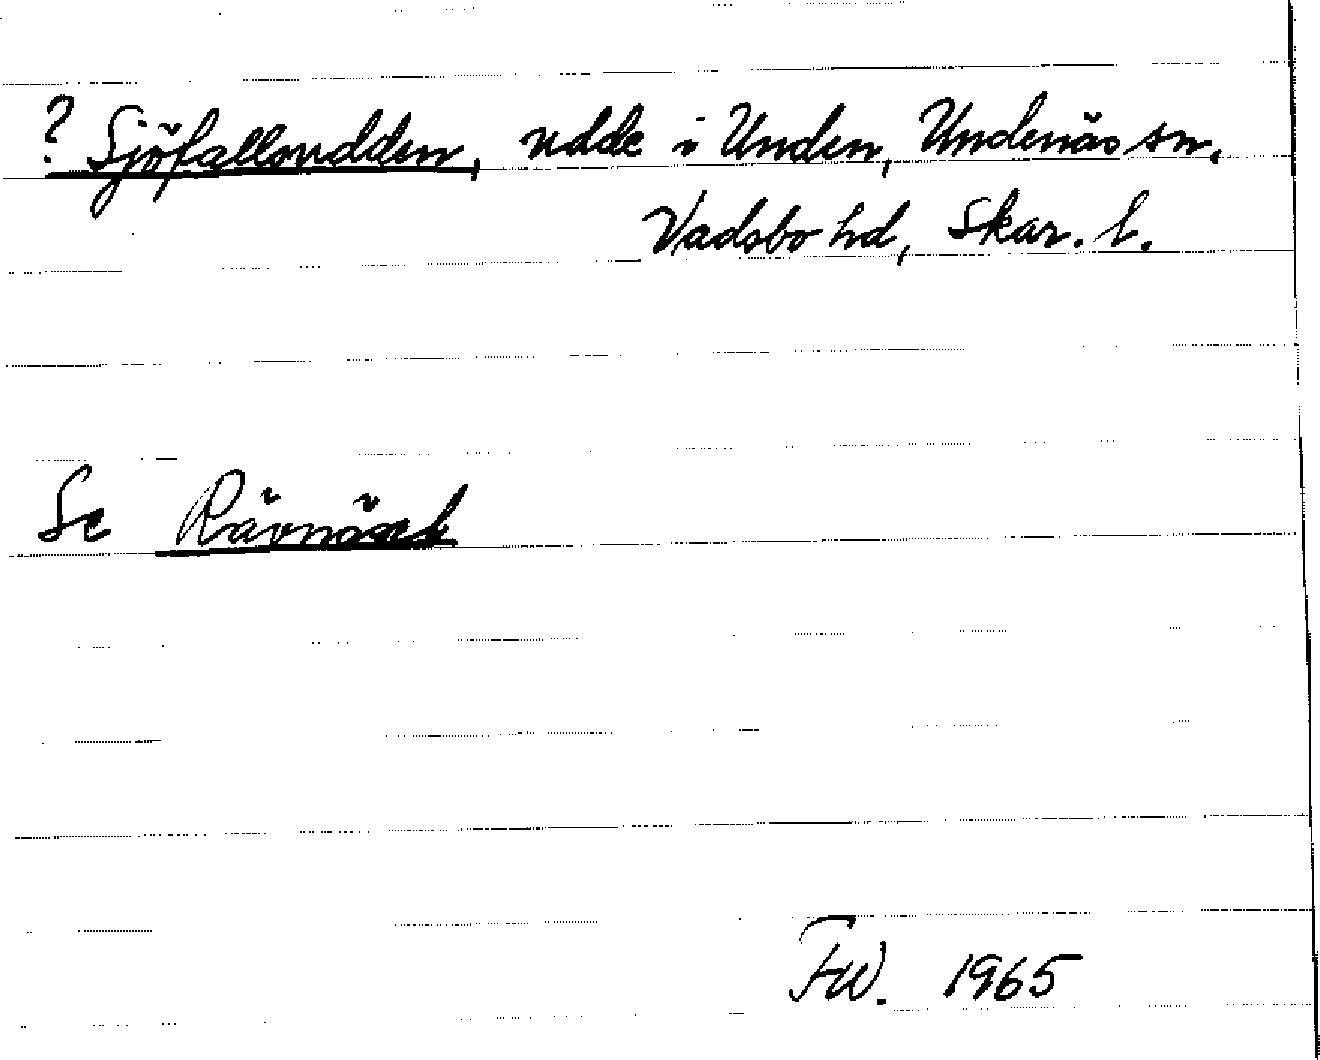 ? Sjöfallsudden, udde i Unden, Undenäs sn.
Vadsbo hd, Skar. l.
Se Rävnäset
FW. 1965